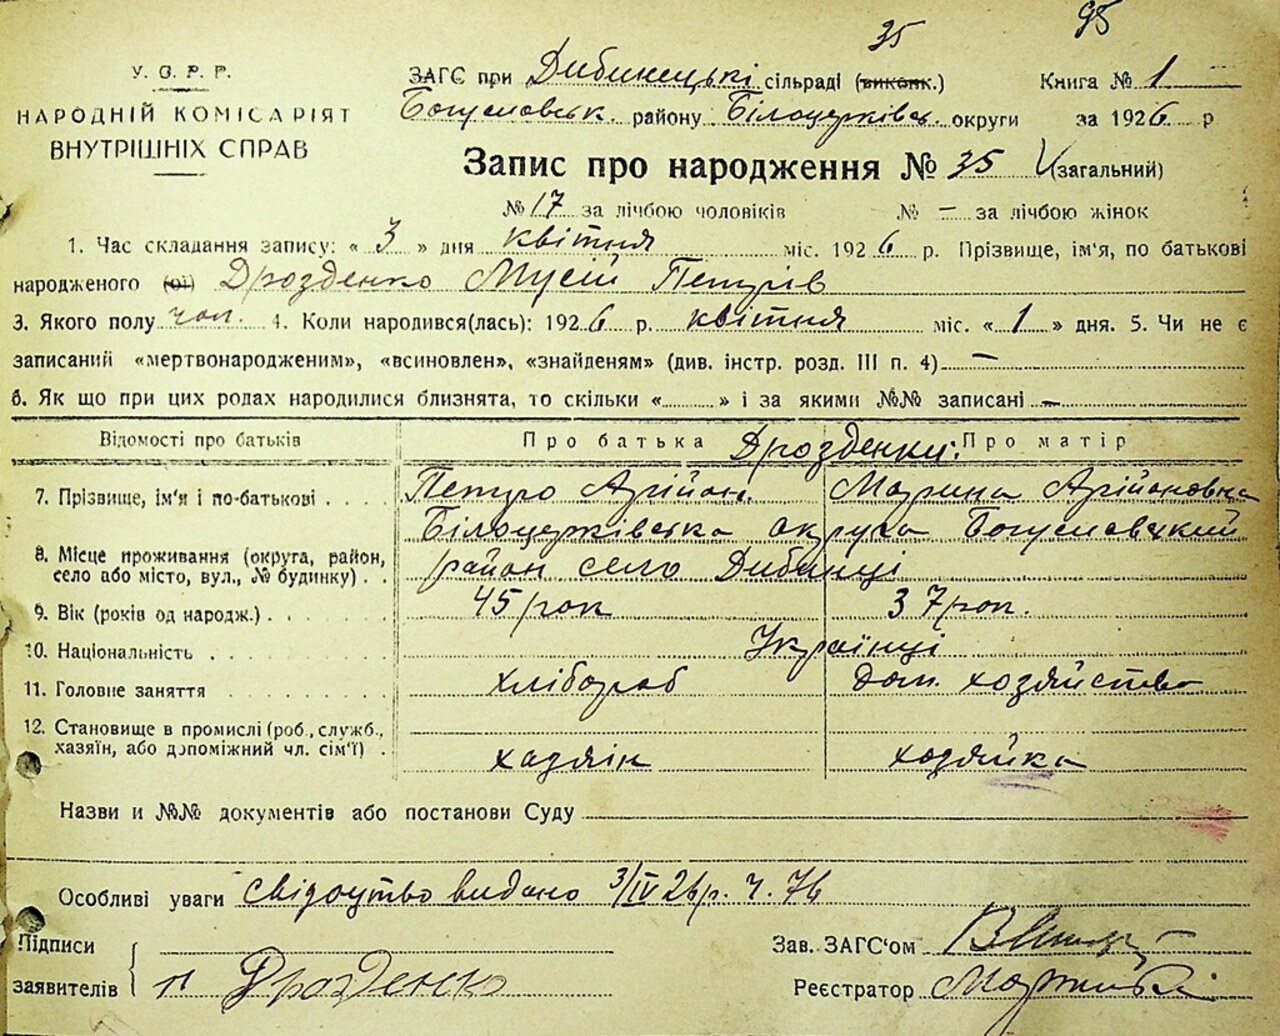 35 98
У. С. Р. Р.
НАРОДНІЙ КОМІСАРІЯТ
ВНУТРІШНІХ СПРАВ
ЗАГС при Дибинецькі сільраді (виконк.) Книга № 1
Богуславськ. району Білоцерківськ. округи за 1926 р
Запис про народження № 35 (загальний)
№ 17 за лічбою чоловіків № – за лічбою жінок
1. Час складання запису: « 3 » дня квітня міс. 1926 р. Прізвище, ім'я, по батькові
народженого (ої) Дрозденко Мусій Петрів
3. Якого полу чол. 4. Коли народився(лась): 1926 р. квітня міс. « 1 » дня. 5. Чи не є
записаний «мертвонародженим», «всиновлен», «знайденям» (див. інстр. розд. III п. 4) –
6. Як що при цих родах народилися близнята, то скільки « » і за якими №№ записані –
Відомості про батьків Про батька Дрозденки: Про матір
7. Прізвище, ім'я і по-батькові Петро Арійон. Марина Арійоновна
8. Місце проживання (округа, район, село або місто, вул., № будинку) Білоцерківська округа Богуславський
район село Дибинці
9. Вік (років од народж.) 45 рок 37 рок.
10. Національність Українці
11. Головне заняття хлібороб дом. хозяйство
12. Становище в промислі (роб., служб.,
хазяїн, або допоміжний чл. сім'ї) хазяін хозяйка
Назви и №№ документів або постанови Суду
Особливі уваги свідоцтво видано 3/IV 26 р. ч. 76
Підписи Зав. ЗАГС'ом
заявителів п Дрозденко Реєстратор